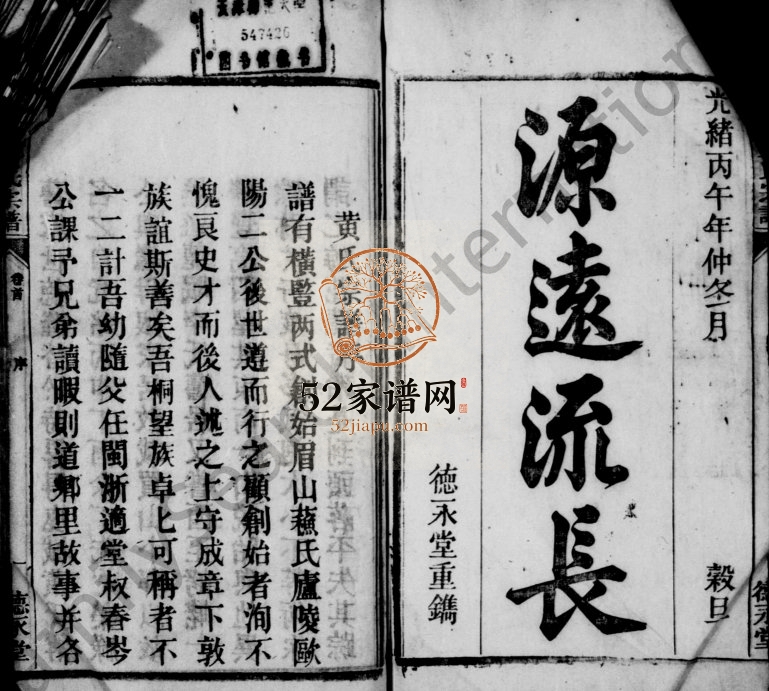 光緒丙午年仲冬月
穀旦
源遠流長
德永堂重鐫
德永堂
547426
黄氏宗譜序
譜有橫豎两式創始眉山蘓氏廬陵歐
陽二公後世遵而行之顧創始者洵不
愧良史才而後人述之上守成章下敦
族誼斯善矣吾桐望族卓匕可稱者不
一二計吾幼隨父任閩浙適堂叔春岑
公課予兄弟讀暇則道鄉里故事并各
氏宗譜
卷首
序
一
德永堂
52家谱网
52jiapu.com